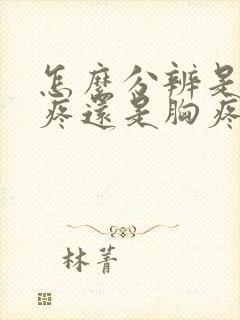 怎麼分辨是
疼還是胸疼
林菁